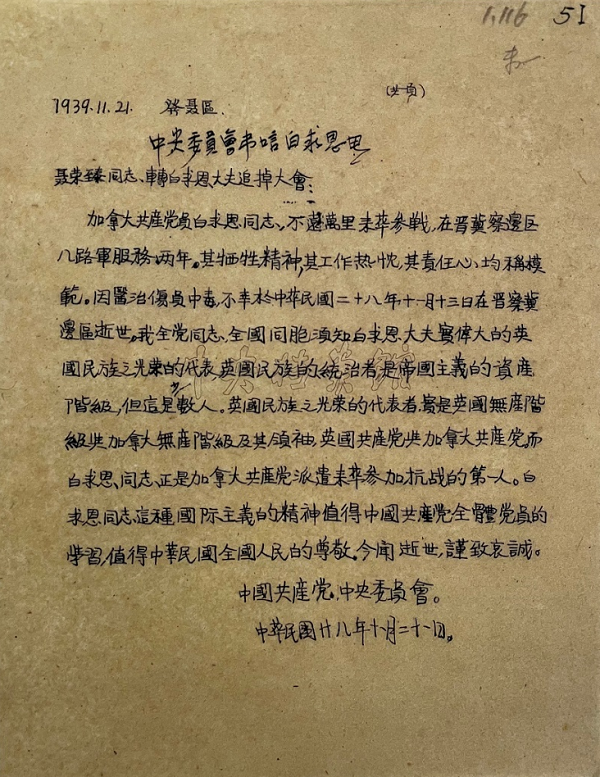 1,116 51
(共一頁)
1939.11.21. 發聶區.
中央委員會弔唁白求恩
聶榮臻同志、轉白求恩大夫追掉大會:
加拿大共產党員白求恩同志、不遠萬里來華參战,在晋冀察邊區
八路軍服務两年。其牺牲精神,其工作热忱,其責任心、均稱模
範。因醫治傷員中毒,不幸於中華民國二十八年十一月十三日在晋察冀
邊區逝世。我全党同志、全國同胞須知白求恩大夫實偉大的英
國民族之光荣的代表英國民族的統治者是帝國主義的資産
階級,但這是少数人。英國民族之光荣的代表者,實是英國無產階
級共加拿大無產階級及其領袖英國共產党共加拿大共產党。而
白求恩同志正是加拿大共產党派遣来華參加抗战的第一人。白
求恩同志這種國际主義的精神值得中國共產党全體党員的
學習,值得中華民國全國人民的尊敬。今聞逝世,謹致哀誠。
中國共産党中央委員會。
中華民國廿八年十一月二十一日。